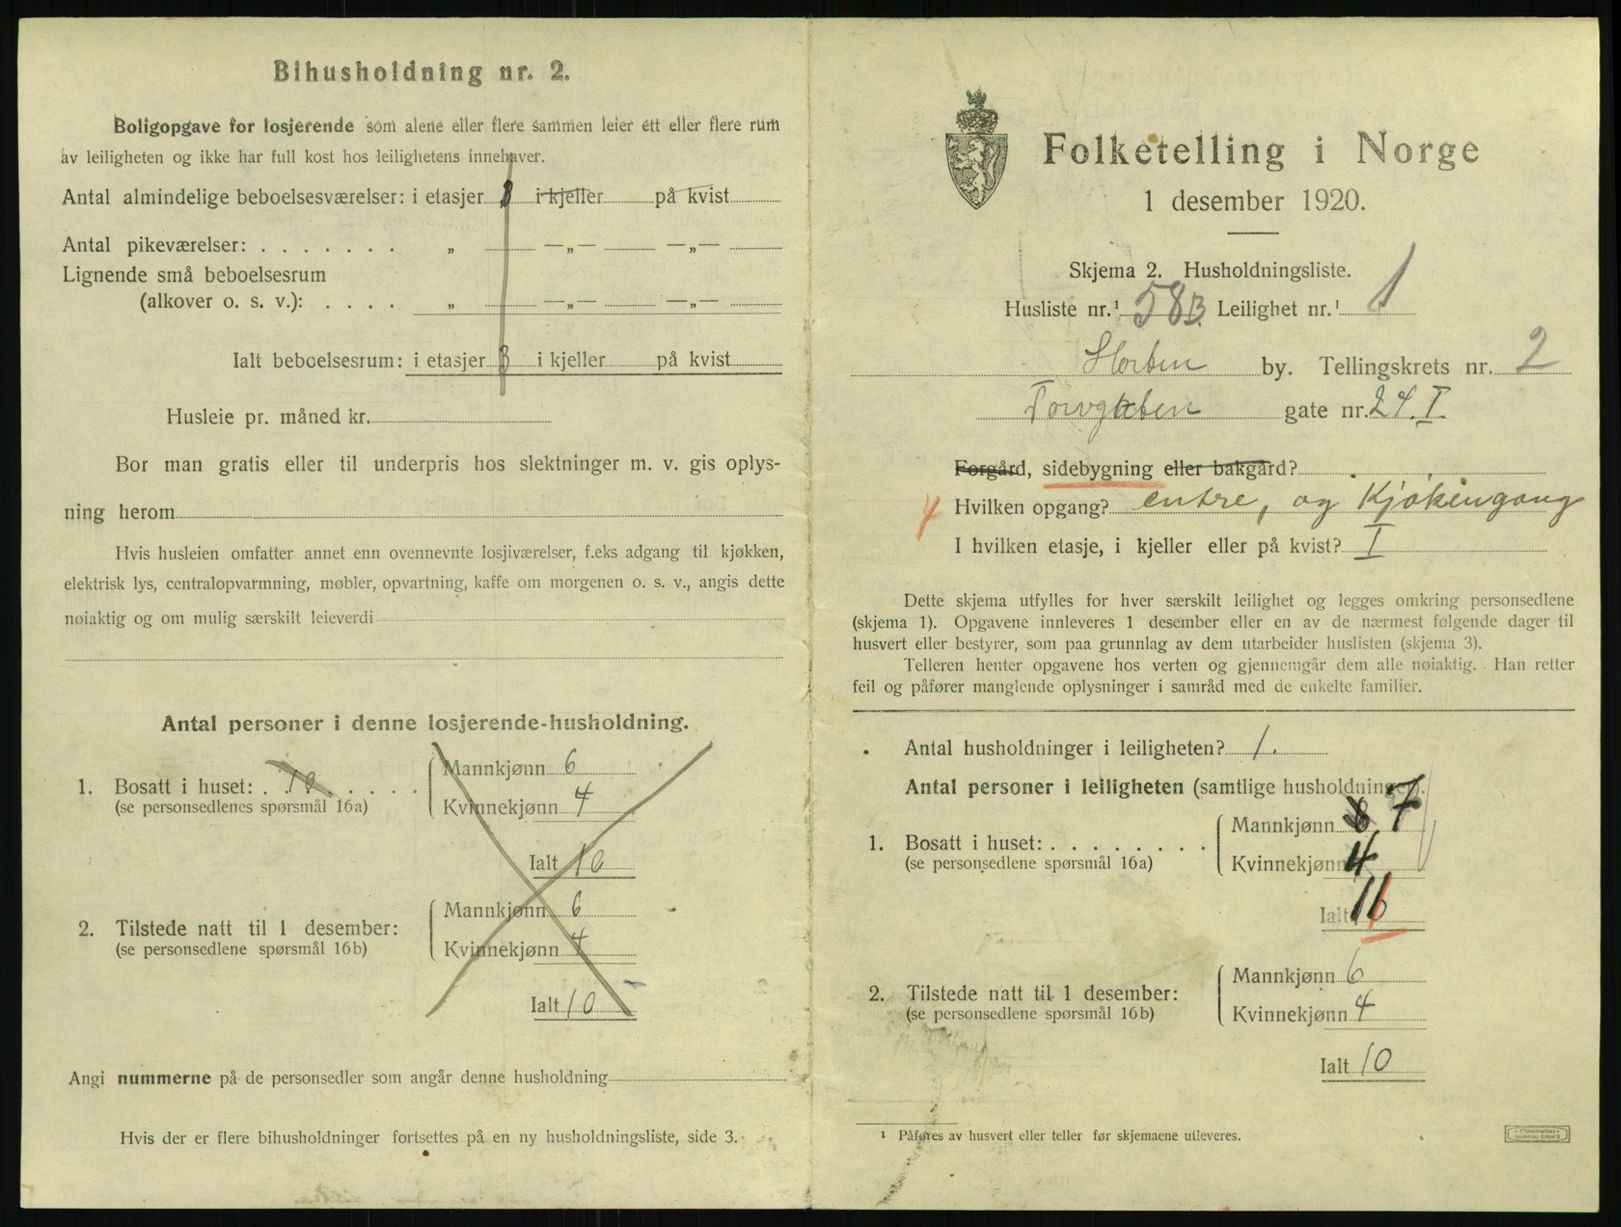 Bihusholdning nr. 2.
Boligopgave for losjerende som alene eller flere sammen leier ett eller flere rum
av leiligheten og ikke har full kost hos leilighetens innehaver.
Antal almindelige beboelsesværelser: i etasjer 3 i kjeller på kvist
Antal pikeværelser: . . . . . . . „ —„— —„—
Lignende små beboelsesrum
(alkover o. s. v.): . . . . „ —„— —„—
Ialt beboelsesrum: i etasjer 3 i kjeller på kvist
Husleie pr. måned kr.
Bor man gratis eller til underpris hos slektninger m. v. gis oplys-
ning herom
Hvis husleien omfatter annet enn ovennevnte losjiværelser, f.eks adgang til kjøkken,
elektrisk lys, centralopvarmning, møbler, opvartning, kaffe om morgenen o. s. v., angis dette
nøiaktig og om mulig særskilt leieverdi
Antal personer i denne losjerende-husholdning.
1. Bosatt i huset: 10 . . . . .
(se personsedlenes spørsmål 16a)
Mannkjønn 6
Kvinnekjønn 4
Ialt 10
2. Tilstede natt til 1 desember:
(se personsedlene spørsmål 16b)
Mannkjønn 6
Kvinnekjønn 4
Ialt 10
Angi nummerne på de personsedler som angår denne husholdning
Hvis der er flere bihusholdninger fortsettes på en ny husholdningsliste, side 3.
Folketelling i Norge
1 desember 1920.
Skjema 2. Husholdningsliste.
Husliste nr.¹ 58B Leilighet nr.¹ 1
Horten by. Tellingskrets nr. 2
Torvgaten gate nr. 24. I.
Forgård, sidebygning eller bakgård?
4 Hvilken opgang? entre, og Kjøkengang
I hvilken etasje, i kjeller eller på kvist? I
Dette skjema utfylles for hver særskilt leilighet og legges omkring personsedlene
(skjema 1). Opgavene innleveres 1 desember eller en av de nærmest følgende dager til
husvert eller bestyrer, som paa grunnlag av dem utarbeider huslisten (skjema 3).
Telleren henter opgavene hos verten og gjennemgår dem alle nøiaktig. Han retter
feil og påfører manglende oplysninger i samråd med de enkelte familier.
Antal husholdninger i leiligheten? 1.
Antal personer i leiligheten (samtlige husholdninger).
1. Bosatt i huset: . . . . . . . .
(se personsedlene spørsmål 16a)
Mannkjønn 8 7
Kvinnekjønn 4
Ialt 11
2. Tilstede natt til 1 desember:
(se personsedlene spørsmål 16b)
Mannkjønn 6
Kvinnekjønn 4
Ialt 10
¹ Påføres av husvert eller teller før skjemaene utleveres.